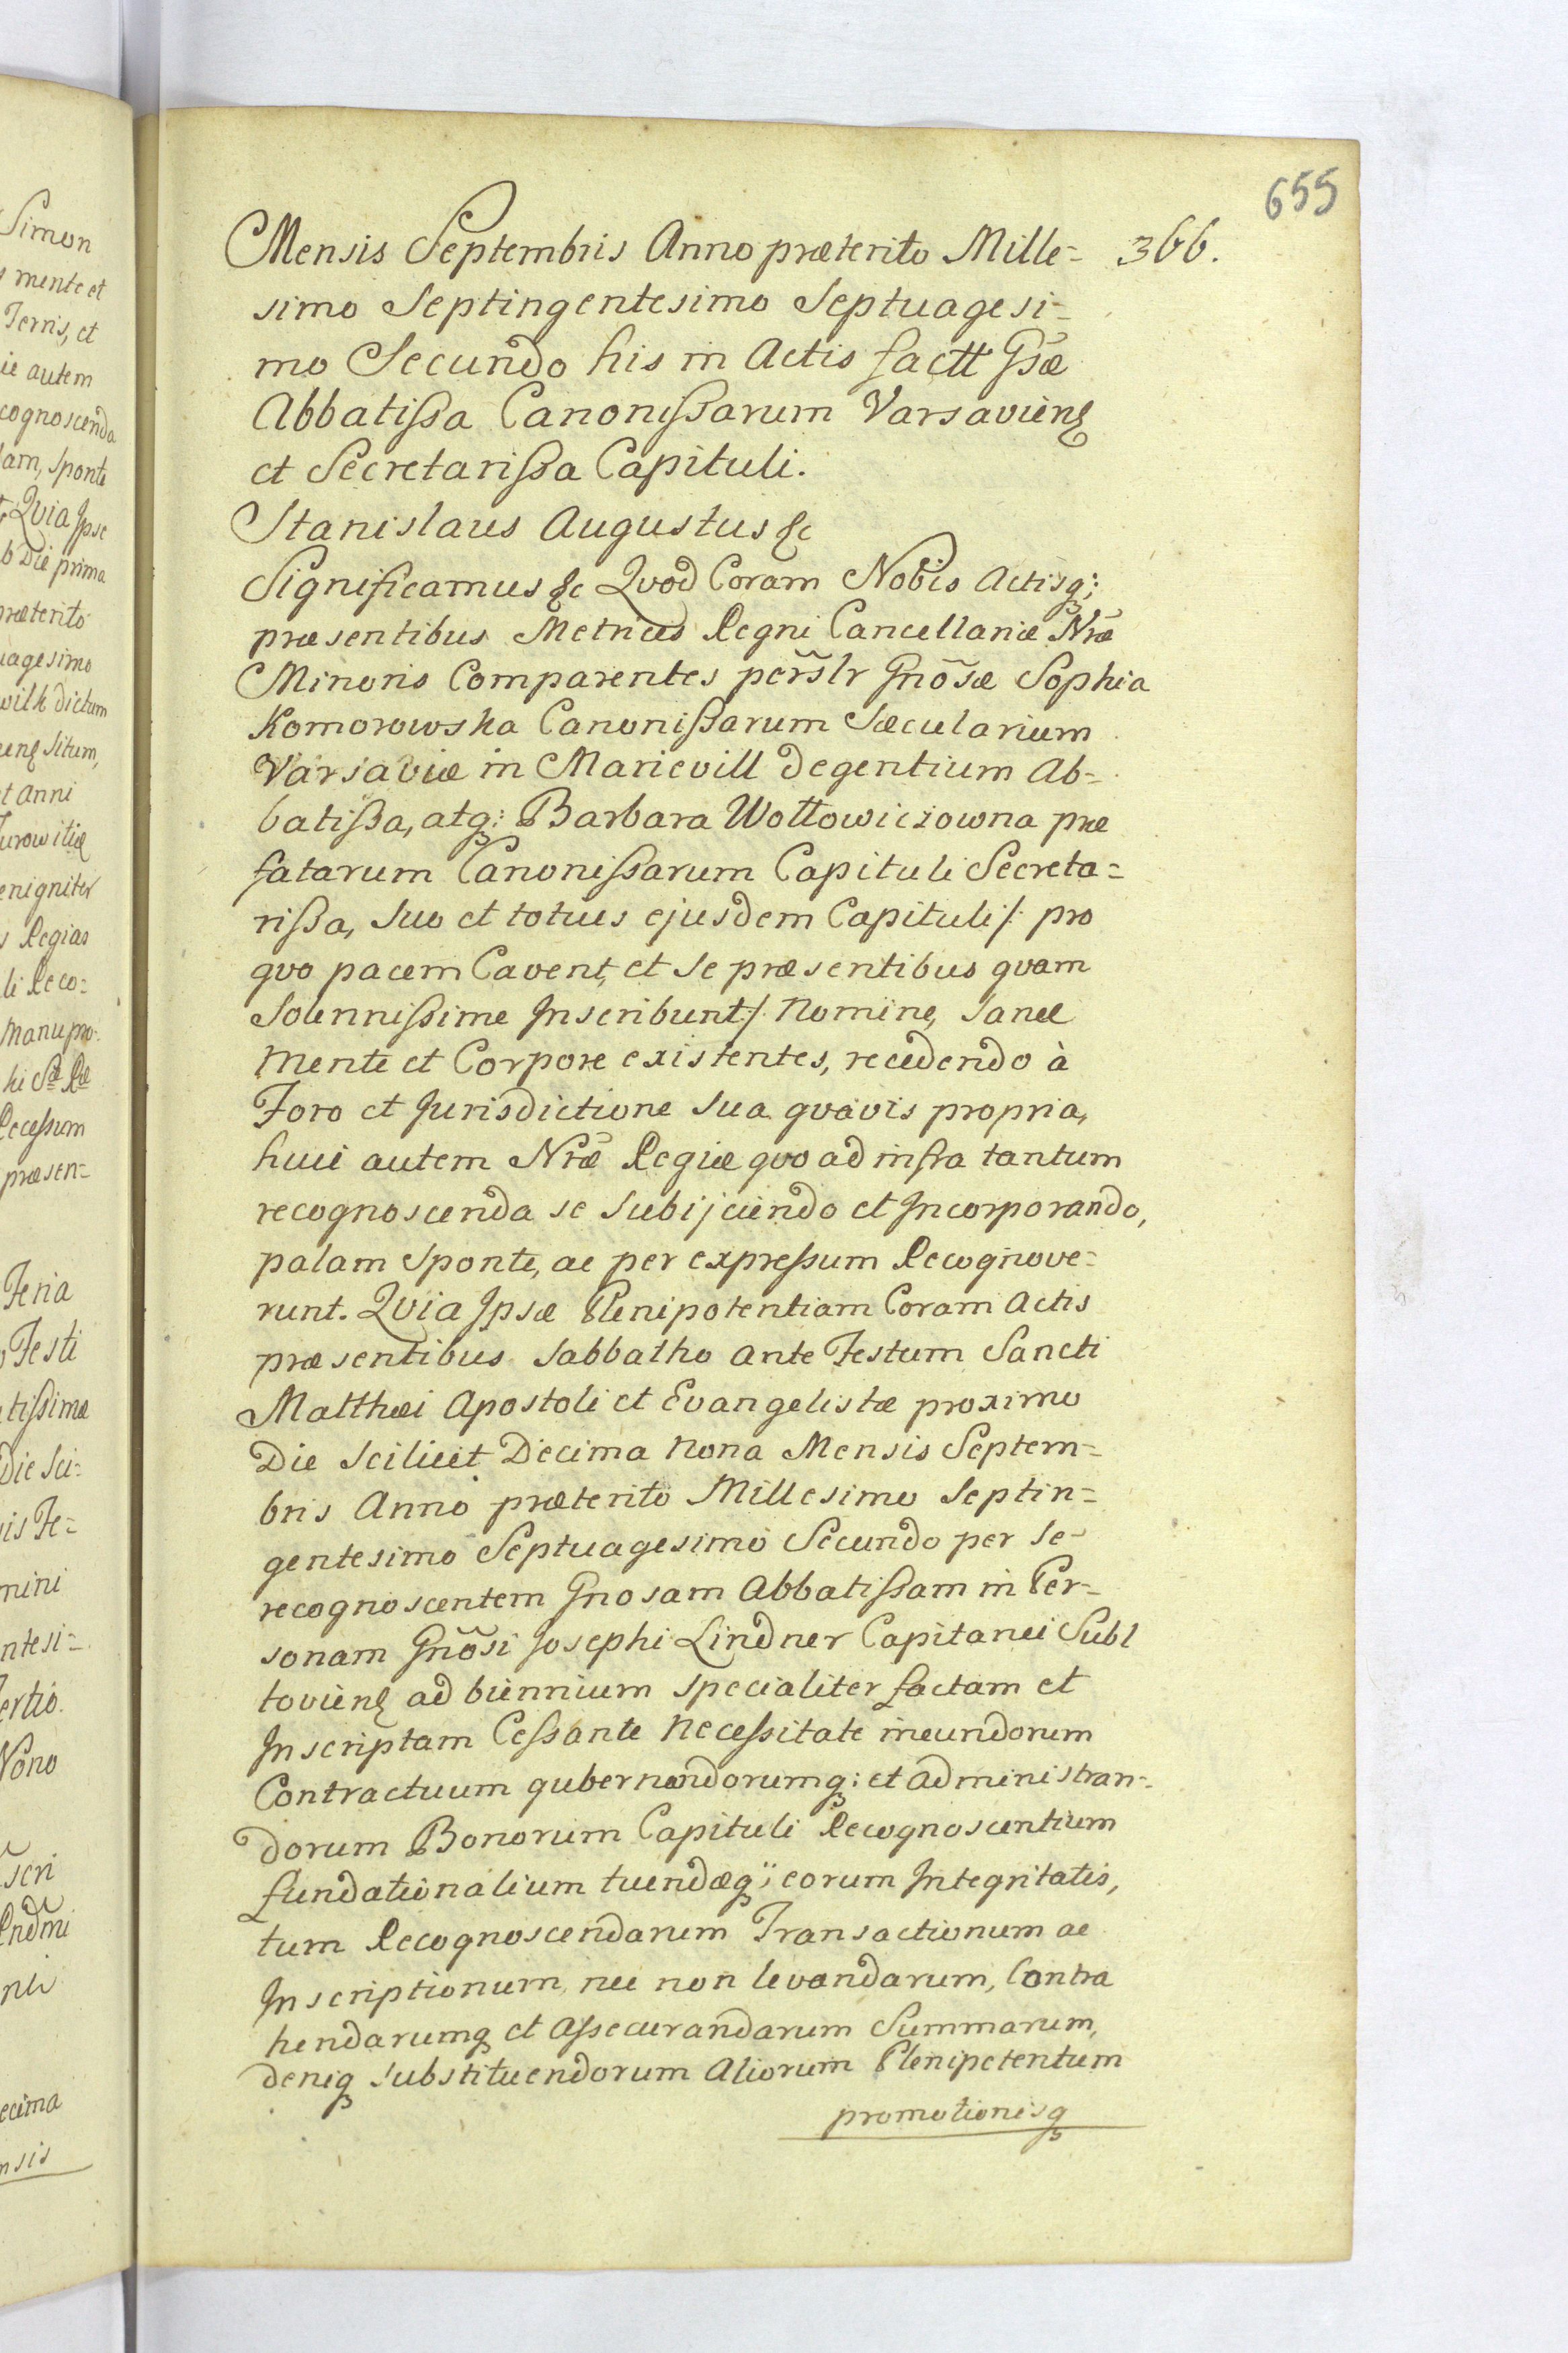 655
Mensis Septembris Anno præterito Mille= 366.
simo Septingentesimo Septuagesi=
mo Secundo his in Actis factt Gsæ
Abbatissa Canonissarum Varsavien̄
et Secretarissa Capituli.
Stanislaus Augustus &c
Significamus &c Qvod Coram Nobis Actisq;
præsentibus Metrices Regni Cancellariæ Nræ
Minoris Comparentes per̄slr Gnōsæ Sophia
Komorowska Canonissarum Sæcularium
Varsaviæ in Marievill degentium Ab=
batissa, atq: Barbara Wołłowiczowna præ
fatarum Canonissarum Capituli Secreta=
rissa, suo et totius ejusdem Capituli /: pro
qvo pacem Cavent, et se præsentibus qvam
Solennissime Inscribunt :/ Nomine, sanæ
mente et Corpore existentes, recedendo à
Foro et Jurisdictione sua qvavis propria,
huic autem Nræ Regiæ qvo ad infra tantum
recognoscenda se subijciendo et Incorporando,
palam sponte, ac per expressum Recognove=
runt. Qvia Ipsæ Plenipotentiam Coram Actis
præsentibus Sabbatho ante Festum Sancti
Matthæi Apostoli et Evangelistæ proximo
Die scilicet Decima Nona Mensis Septem=
bris Anno præterito Millesimo Septin=
gentesimo Septuagesimo Secundo per se
recognoscentem Gnosam Abbatissam in Per=
sonam Gnōsi Josephi Lindner Capitanei Subl
tovien̄ ad biennium specialiter factam et
Inscriptam Cessante Necessitate ineundorum
Contractuum gubernandorumq; et administran=
dorum Bonorum Capituli Recognoscentium
fundationalium tuendæq; eorum Integritatis,
tum Recognoscendarum Transactionum ac
Inscriptionum, nec non levandarum, Contra
hendarumq et Assecurandarum Summarum,
deniq substituendorum Aliorum Plenipotentum
promotionisq